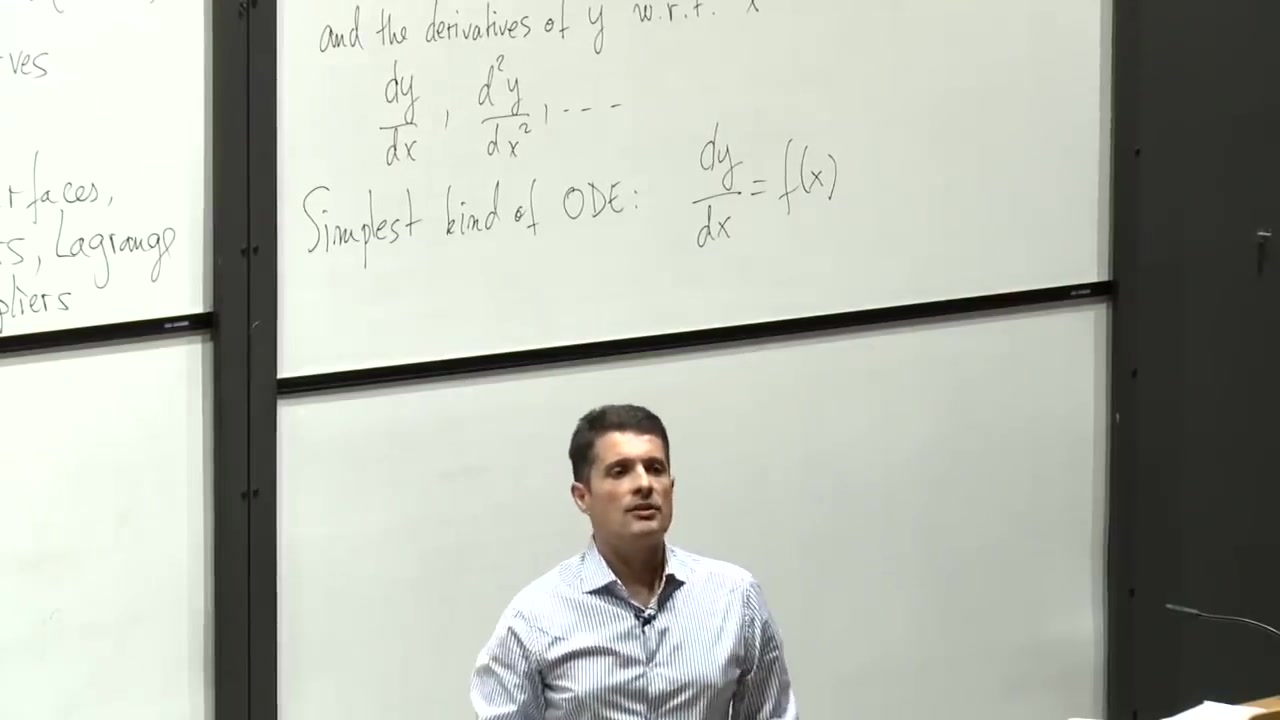 rfaces,
Lagrange
and the derivatives of y w.r.t. x
dy/dx, d²y/dx², ----
Simplest kind of ODE: dy/dx = f(x)